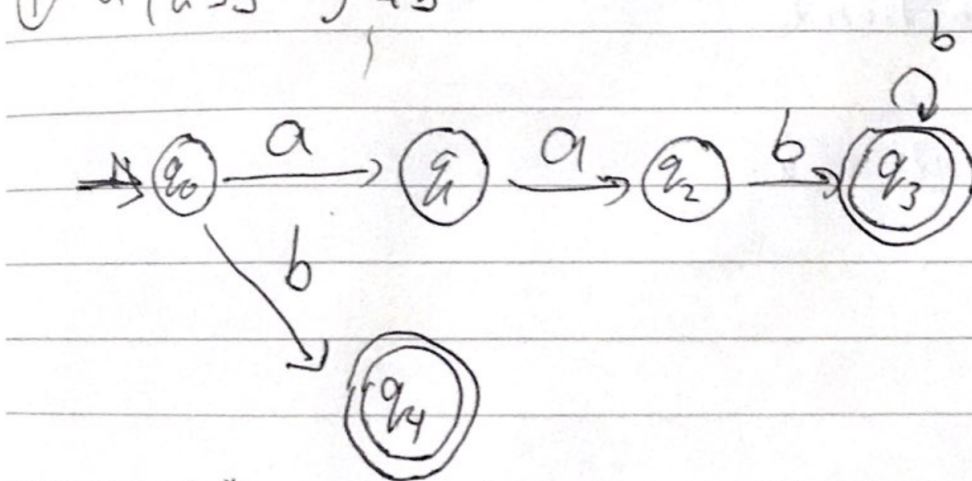 b
q0 a q1 a q2 b q3
b
q4